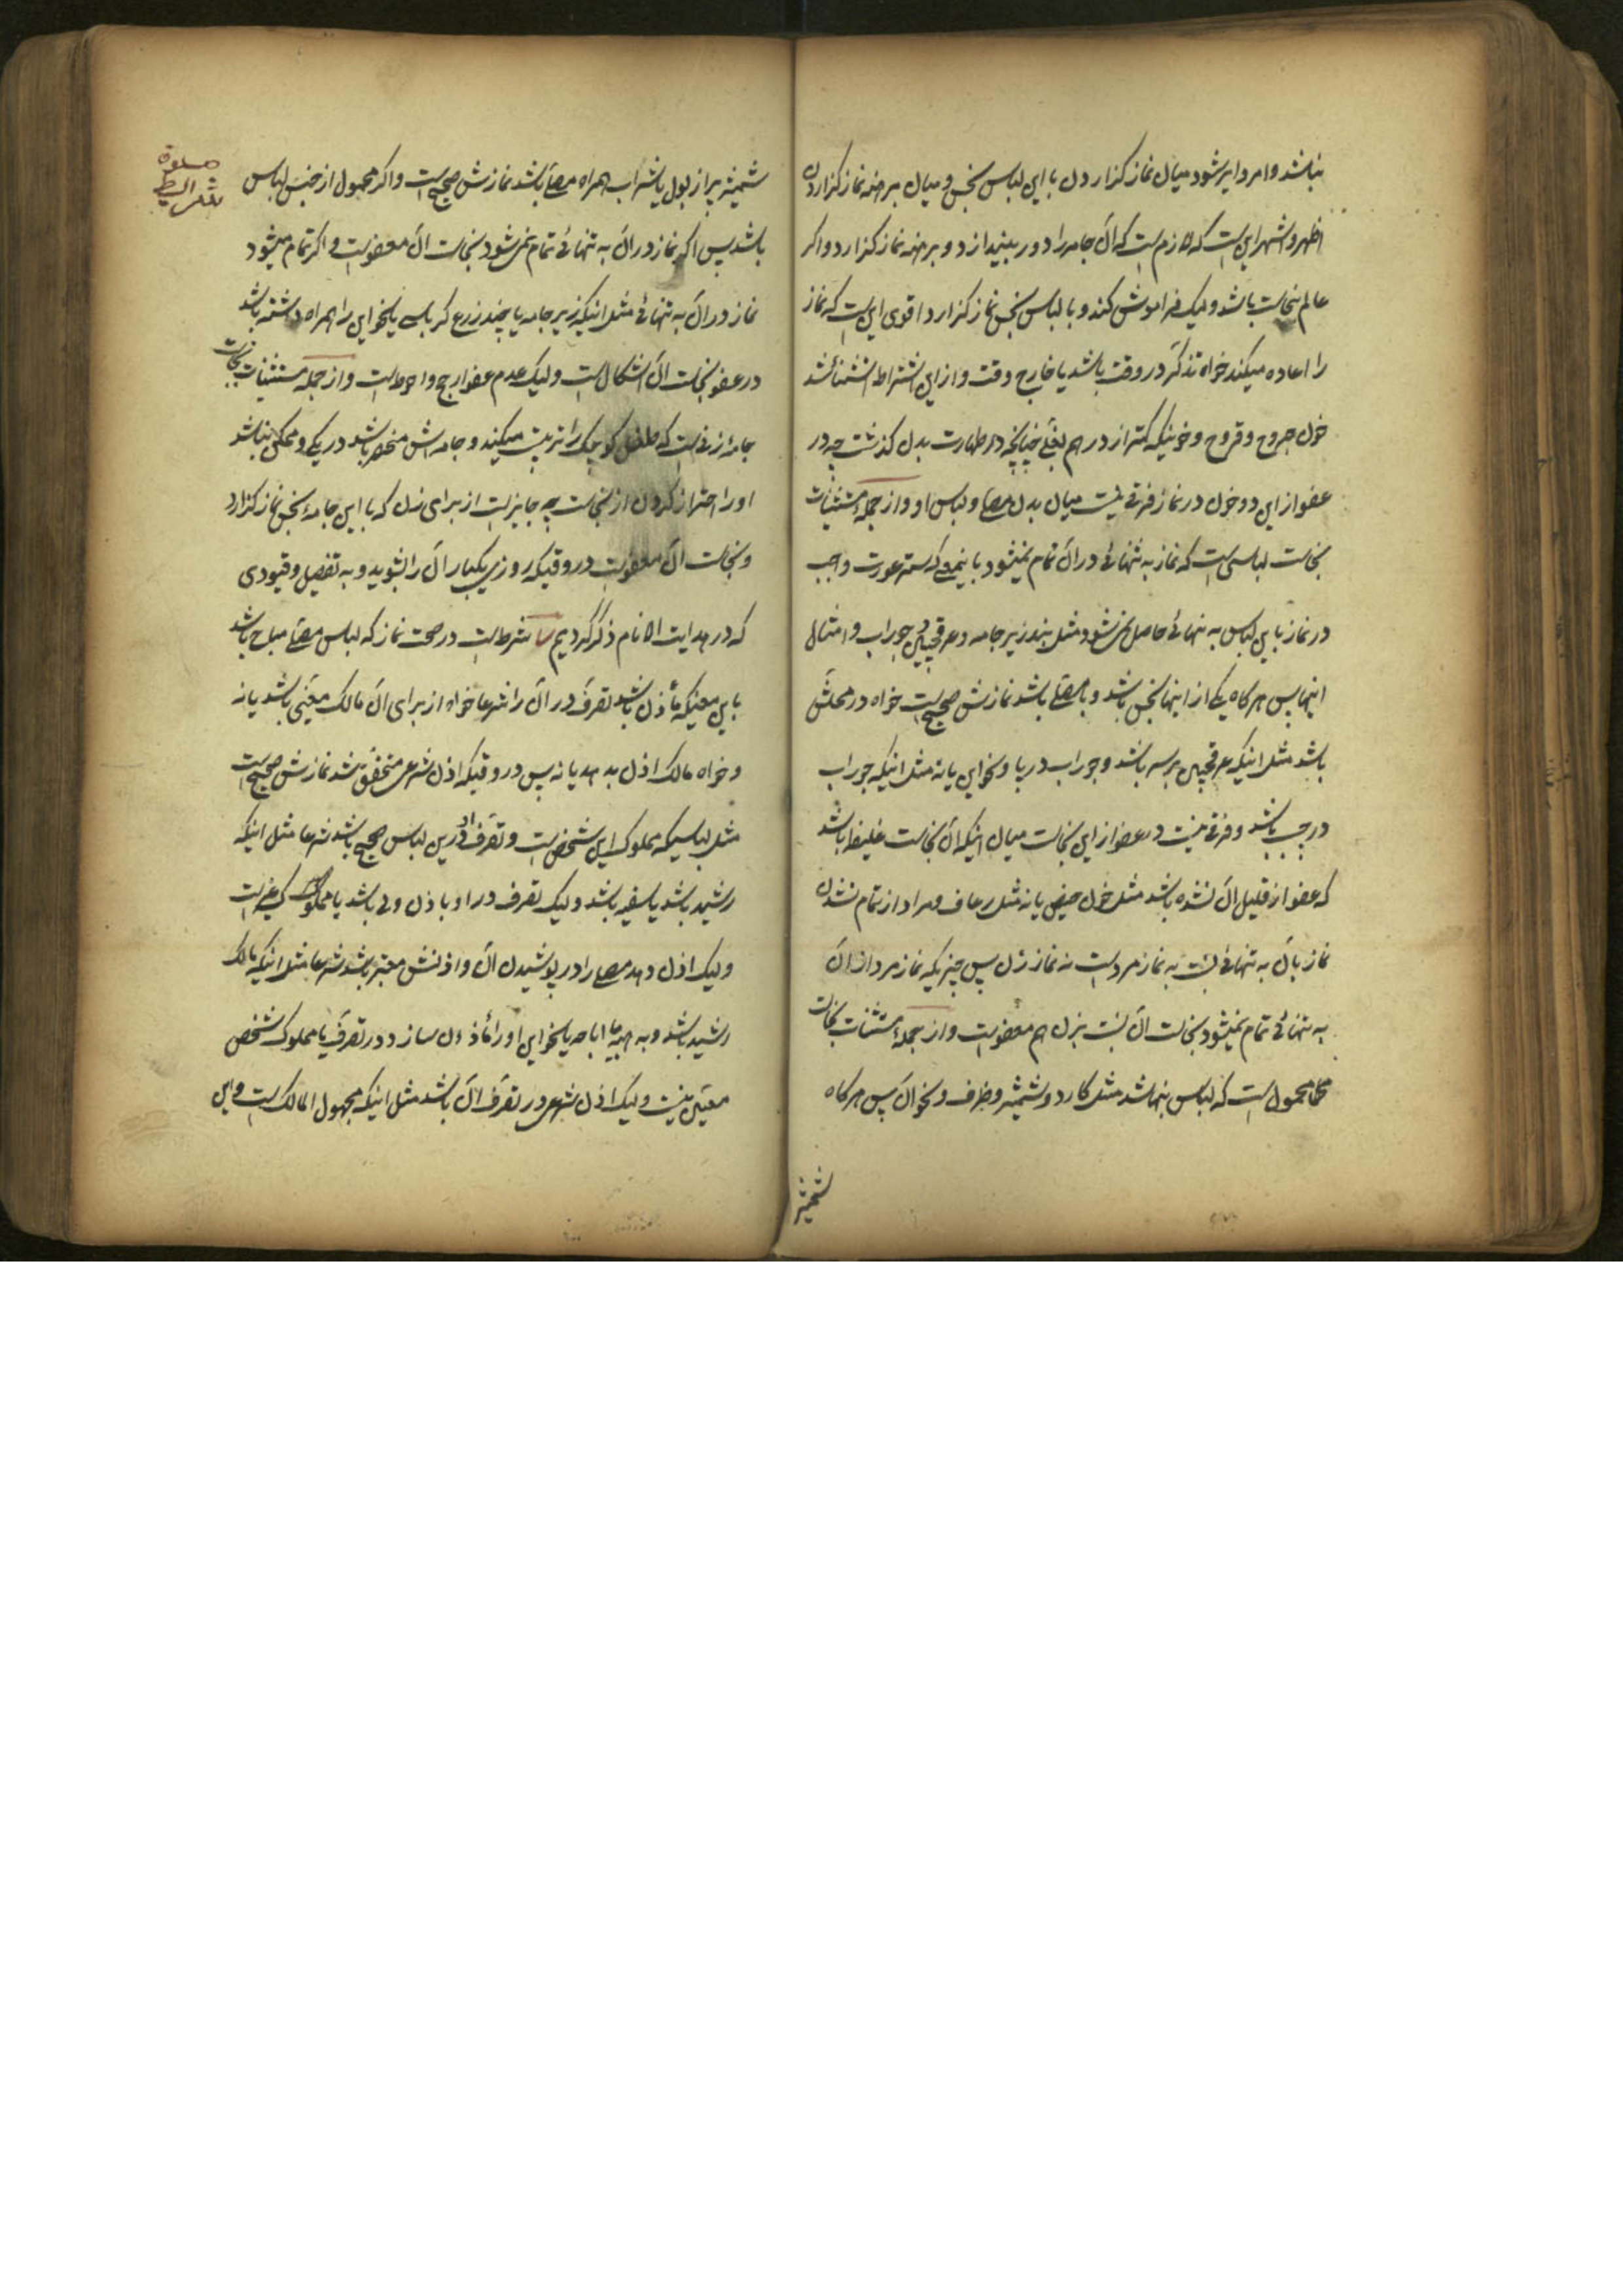 نباشد و امر دایر شود میان نماز گزاردن با این لباس نجس و میان برهنه نماز گزاردن
اظهر و اشهر این است که لازم است که آن جامه را دور بیندازد و برهنه نماز گزارد و اگر
عالم بنجاست باشد ولیک فراموش کند و با لباس نجس نماز گزارد اقوی این است که نماز
را اعاده میکند خواه تذکر در وقت باشد یا خارج وقت و از این اشتراط استثنا شد
خون جروح و قروح و خونیکه کمتر از درهم بغلی چنانچه در طهارت بدن گذشت چه در
عفو از این دو خون در نماز فرقی نیست میان بدن مصلی و لباس او و از جمله مستثنیات
نجاست لباسی است که نماز به تنهائی در آن تمام نمیشود باینمعنی که ستر عورت واجب
در نماز باین لباس به تنهائی حاصل نمیشود مثل بند زیرجامه و عرقچین و جوراب و امثال
اینها پس هرگاه یکی از اینها نجس باشد و با مصلی باشد نمازش صحیح است خواه در محلش
باشد مثل اینکه عرقچین بر سر باشد و جوراب در پا و نحو این یا نه مثل اینکه جوراب
در جیب باشد و فرقی نیست در عفو از این نجاست میان اینکه آن نجاست غلیظه باشد
که عفو از قلیل آن نشده باشد مثل خون حیض یا نه مثل رعاف و مراد از تمام نشدن
نماز بآن به تنهائی نسبت به نماز مرد است نه نماز زن پس چیزیکه نماز مرد در آن
به تنهائی تمام نمیشود نجاست آن نسبت بزن هم معفو است و از جمله مستثنیات نجاست
محمول است که لباس نباشد مثل کارد و شیشه و ظرف و نحو آن پس هرگاه
شیشه
صلوة
شرایط
شیشه پر از بول یا شراب همراه مصلی باشد نمازش صحیح است و اگر محمول از جنس لباس
باشد پس اگر نماز در آن به تنهائی تمام نمیشود نجاست آن معفو است و اگر تمام میشود
نماز در آن به تنهائی مثل اینکه زیرجامه یا چند زرع کرباسی یا نحو این را همراه داشته باشد
در عفو نجاست آن اشکال است ولیک عدم عفو ارجح و احوط است و از جمله مستثنیات نجاست
جامه زنی است که طفل کوچک را تربیت میکند و جامه اش منحصر باشد در یکی و ممکن نباشد
او را احتراز کردن از نجاست چه جایز است از برای زن که با این جامه نجس نماز گزارد
و نجاست آن معفو است در وقتیکه روزی یکبار آن را بشوید و به تفصیل و قیودی
که در هدایت الانام ذکر کردیم شرط است در صحت نماز که لباس مصلی مباح باشد
باین معنی که مأذون باشد تصرف در آن را شرعا خواه از برای آن مالک معینی باشد یا نه
و خواه مالک اذن بدهد یا نه پس در وقتیکه اذن شرعی متحقق شد نمازش صحیح است
مثل لباسیکه مملوک این شخص است و تصرف او در این لباس صحیح باشد شرعا مثل اینکه
رشید باشد یا سفیه باشد ولیک تصرف در او با اذن ولی باشد یا مملوک غیر است
ولیک اذن دهد مصلی را در پوشیدن آن و اذنش معتبر باشد شرعا مثل اینکه مالک
رشید باشد و به هبه یا اباحه یا نحو این او را مأذون سازد در تصرف یا مملوک شخص
معین نیست ولیک اذن شرعی در تصرف آن باشد مثل اینکه مجهول المالک است و این